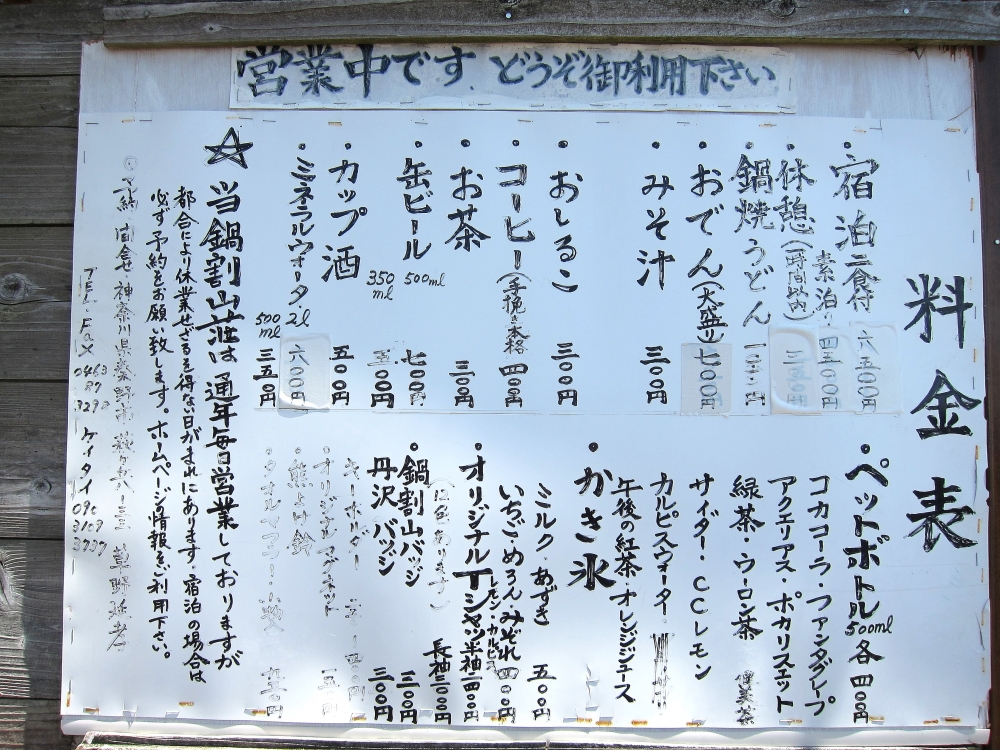 営業中です どうぞ御利用下さい
料金表
・宿泊 二食付 六五〇〇円
素泊り 四五〇〇円
・休憩(一時間以内)
・鍋焼うどん
・おでん(大盛り) 七〇〇円
・みそ汁 三〇〇円
・おしるこ 三〇〇円
・コーヒー(手挽き本格) 四〇〇円
・お茶 三〇〇円
・缶ビール 500ml 七〇〇円
350ml 五〇〇円
・カップ酒 五〇〇円
・ミネラルウォータ・2l 六〇〇円
500ml 三五〇円
・ペットボトル 500ml 各四〇〇円
コカコーラ・ファンタグレープ
アクエリアス・ポカリスエット
緑茶・ウーロン茶
サイダー・CCレモン
カルピスウォーター
午後の紅茶・オレンジジュース
・かき氷
ミルク・あずき 五〇〇円
いちご・めろん・みぞれ レモン・カルピス 四〇〇円
・オリジナルTシャツ 半袖 二四〇〇円
長袖 三〇〇〇円
・鍋割山バッジ 三〇〇円
丹沢バッジ 三〇〇円
・キーホルダー
・オリジナルマグネット
・熊よけ鈴
☆当鍋割山荘は通年毎日営業しておりますが
都合により休業せざるを得ない日がまれにあります・宿泊の場合は
必ず予約をお願い致します。ホームページの情報をご利用下さい。
◎予約・問合せ 神奈川県秦野市 草野延孝
TEL・Fax 0463 87 3298 ケイタイ 090 3109 3737